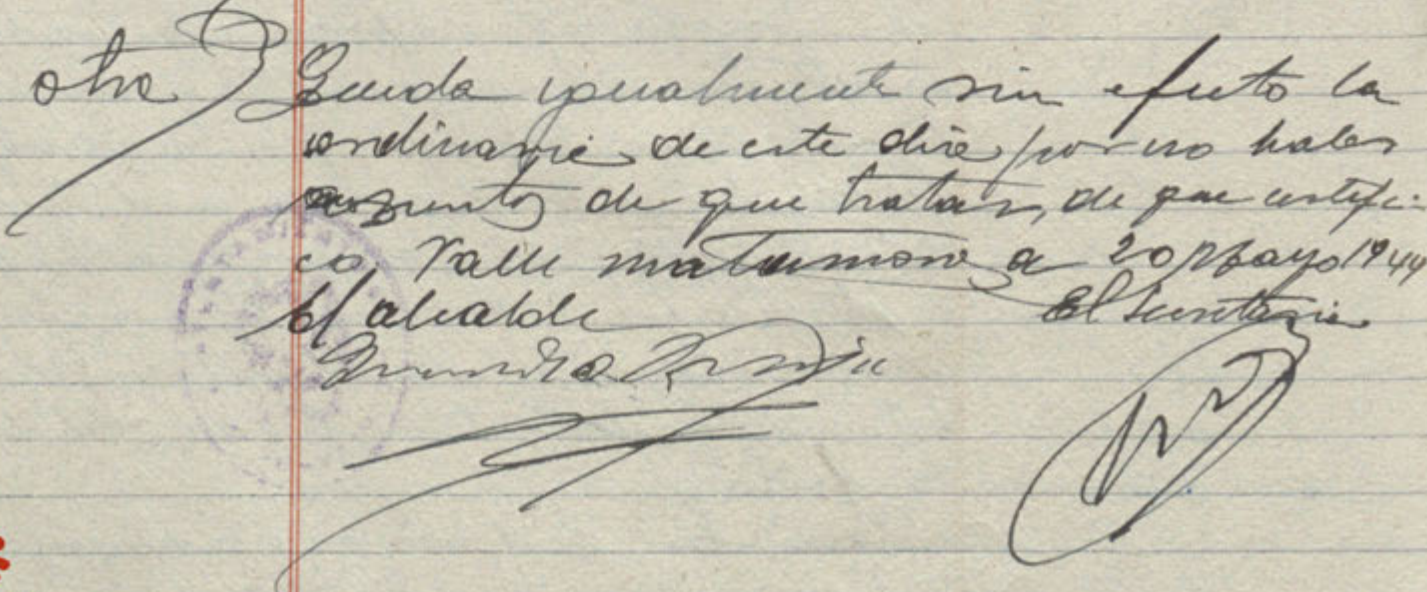 otra
Queda igualmente sin efecto la
ordinaria de este dia por no haber
asuntos de que tratar, de que certifi-
co Valle matamoros a 20 Mayo 1944
El alcalde
El Secretario